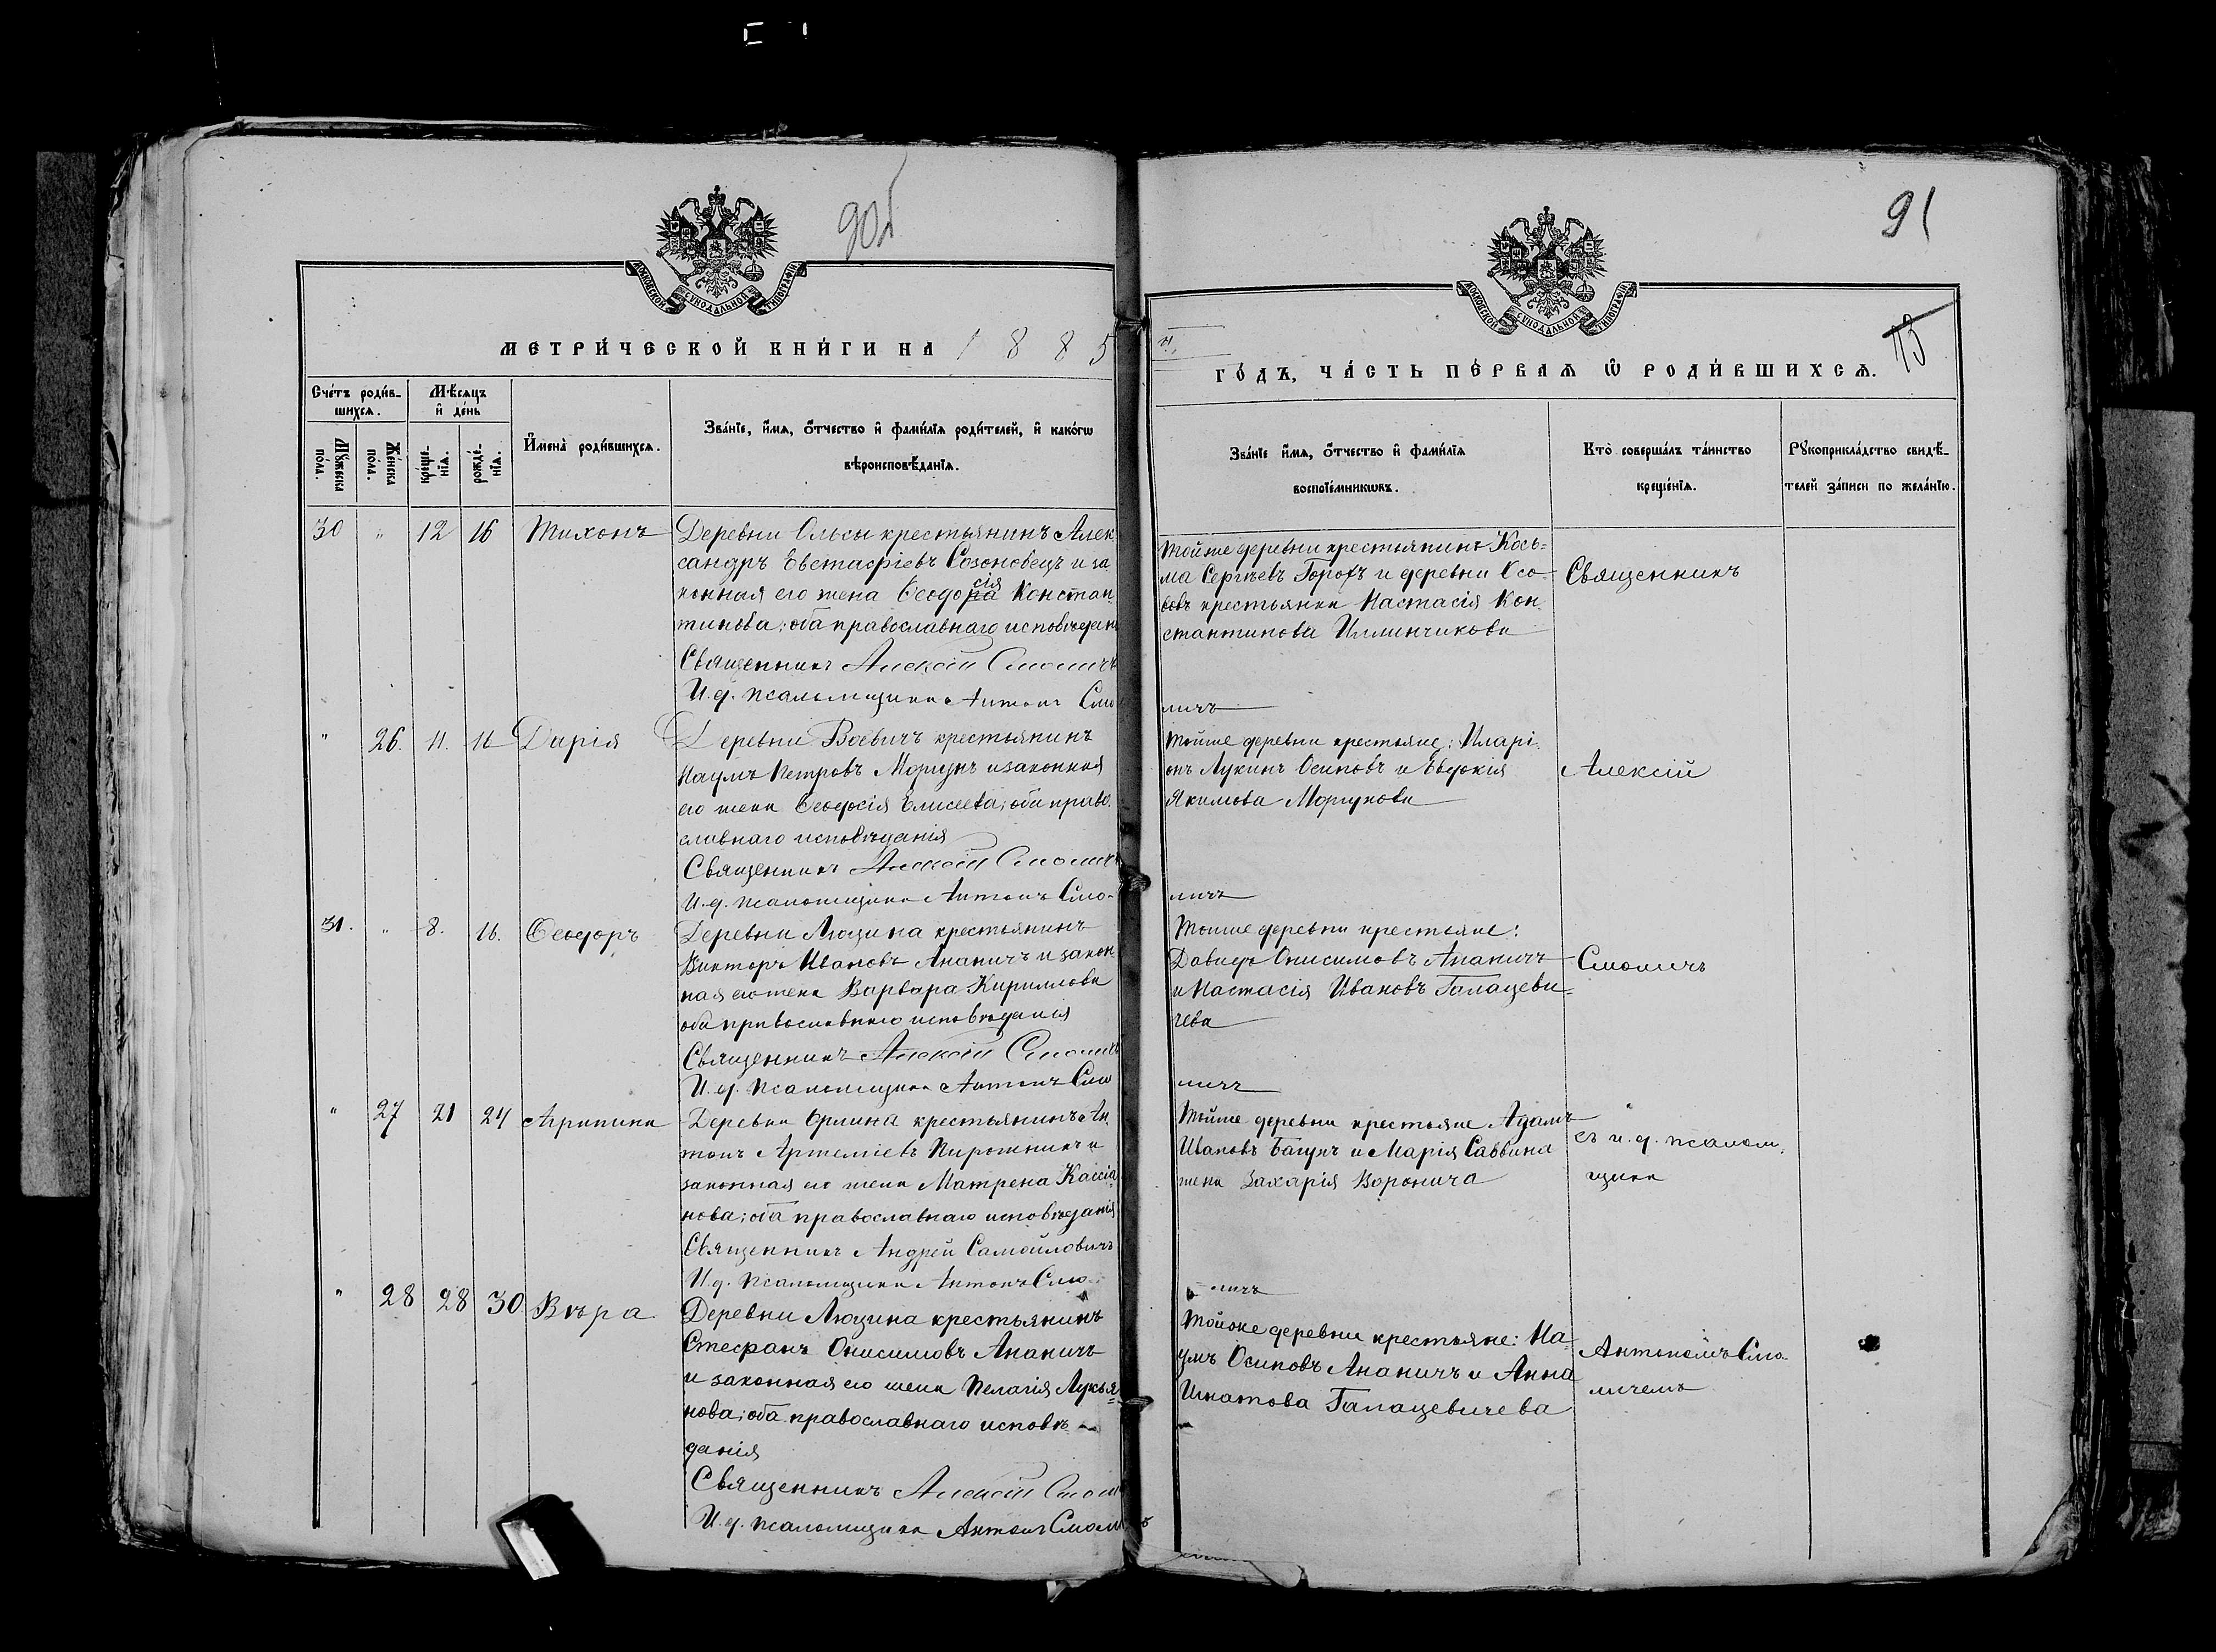 90б
МОСКОВСКОЙ СѴНОДАЛЬНОЙ ТИПОГРАФІИ
МЕТРИ́ЧЕСКОЙ КНИ́ГИ НА 1885
Сче́тъ роди́в-
шихсѧ.
Мѣ́сѧцъ
и҆ де́нь
Мꙋ́жеска
по́ла.
Же́нска
по́ла.
креще́-
нїѧ.
рожде́-
нїѧ.
И҆мена̀ роди́вшихсѧ.
Зва́нїе, и҆́мѧ, ѻ҆́тчество и҆ фами́лїѧ роди́телей, и҆ како́гѡ
вѣроисповѣ́данїѧ.
30 " 12 16 Тихонъ
Деревни Ольсы крестьянинъ Алек
сандръ Евстафіевъ Созоновецъ и за
конная его жена Ѳеодора сія Констан
тинова; оба православнаго исповѣдан
Священникъ Алексій Смоличъ
И. д. псаломщика Антонъ Смо
" 26. 11. 16 Дарія
Деревни Воевичъ крестьянинъ
Наумъ Петровъ Моргунъ и законная
его жена Ѳеодосія Елисеева; оба право
славнаго исповѣданія
Священникъ Алексій Смоличъ
И. д. псаломщика Антонъ Смо-
31. " 8. 16. Ѳеодоръ
Деревни Людина крестьянинъ
Викторъ Ивановъ Ананичъ и закон
ная его жена Варвара Кириллова
оба православнаго исповѣданія
Священникъ Алексій Смоличъ
И. д. псаломщика Антонъ Смо
" 27 21 24 Агрипина
Деревни Орлина крестьянинъ Ан
тонъ Артеміевъ Пирожникъ и
законная его жена Матрена Кассіа
нова; оба православнаго исповѣданія
Священникъ Андрей Самойловичъ
И. д. псаломщика Антонъ Смо
" 28 28 30 Вѣра
Деревни Людина крестьянинъ
Стефанъ Онисимовъ Ананичъ
и законная его жена Пелагія Лукья
нова; оба православнаго исповѣ-
данія
Священникъ Алексій Смол
И. д. псаломщика Антонъ Смоличъ
91
МОСКОВСКОЙ СѴНОДАЛЬНОЙ ТИПОГРАФІИ
113
ГО́ДЪ, ЧА́СТЬ ПЕ́РВАѦ Ѡ҆ РОДИ́ВШИХСѦ.
Зва́нїе и҆́мѧ, ѻ҆́тчество и҆ фами́лїѧ
воспрїе́мникѡвъ.
Кто̀ соверша́лъ та́инство
креще́нїѧ.
Рꙋкоприкла́дство свидѣ́-
телей за́писи по жела́нїю.
Тойже деревни крестьянинъ Кось-
ма Сергѣевъ Горохъ и деревни Осо-
вовъ крестьянка Настасія Кон
стантинова Иллинчикова
Священникъ
личъ
Тойже деревни крестьяне: Иларі
онъ Лукинъ Осиповъ и Евдокія
Якимова Моргунова
Алексій
личъ
Тойже деревни крестьяне:
Давидъ Онисимовъ Ананичъ
и Настасія Ивановъ Галацеви-
чева
Смоличъ
личъ
Тойже деревни крестьяне Адамъ
Ивановъ Багунъ и Марія Саввина
жена Захарія Воронича
съ и. д. псалом
щика
личъ
Тойже деревни крестьяне: На-
умъ Осиповъ Ананичъ и Анна
Игнатова Галацевичева
Антономъ Смо-
личемъ